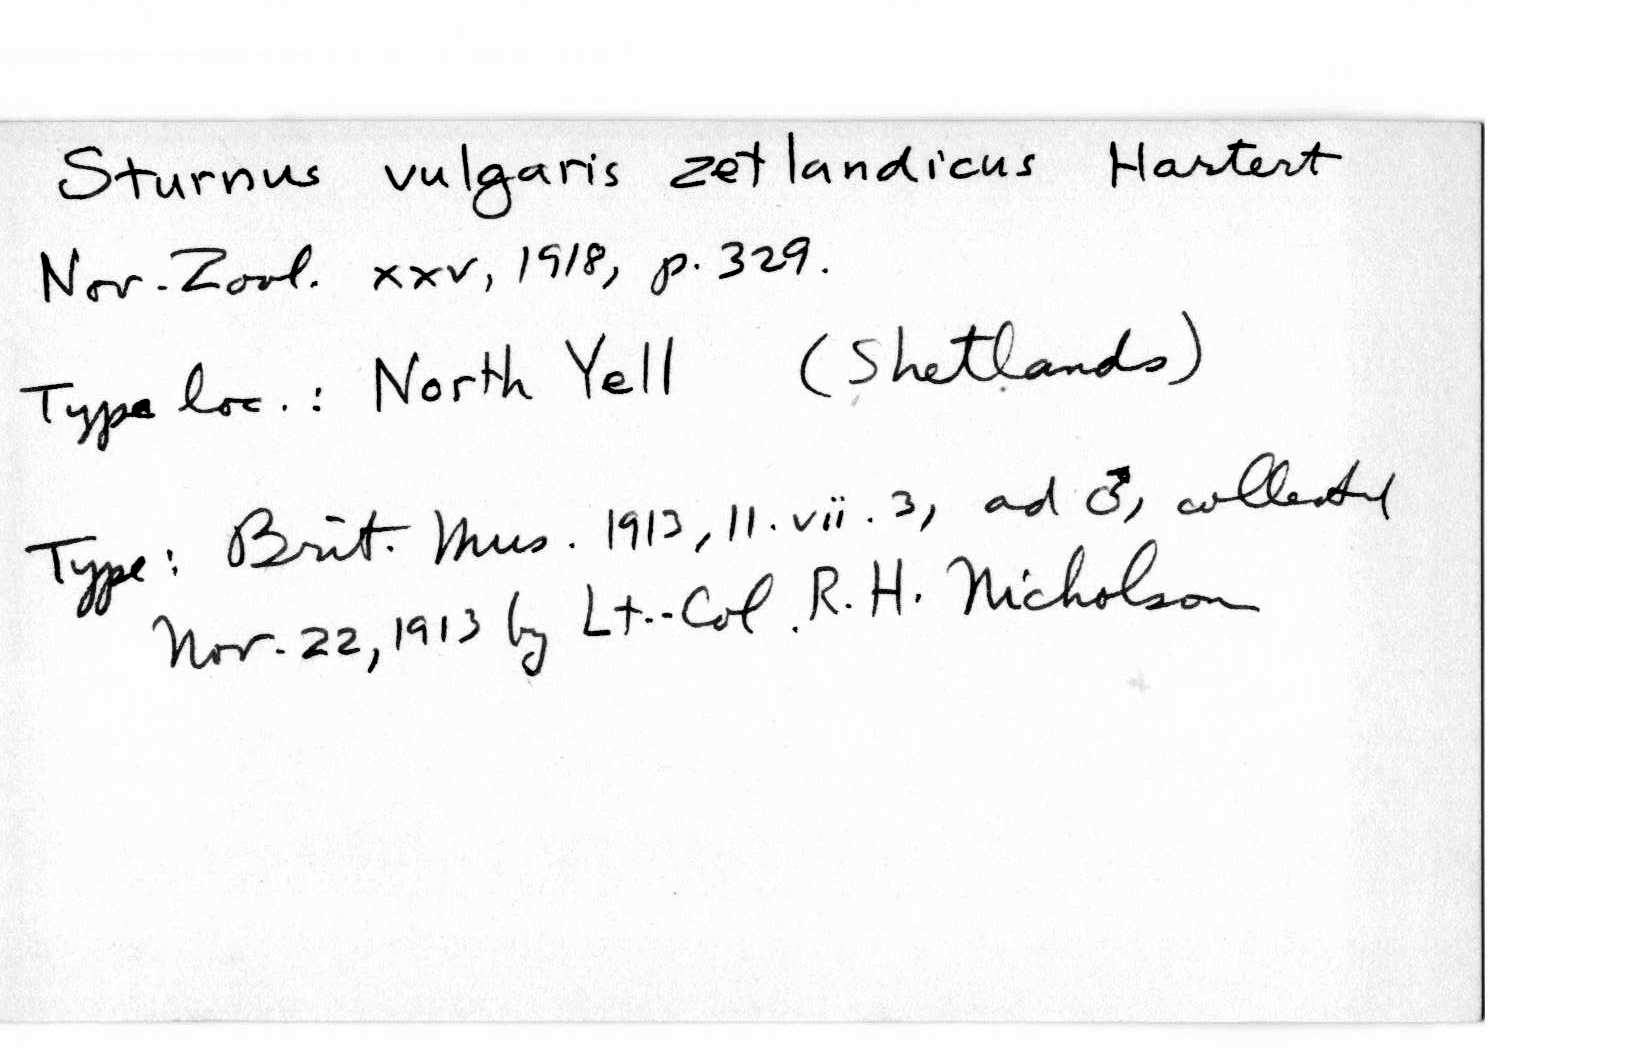 Sturnus vulgaris zetlandicus Hartert
Nov. Zool. xxv, 1918, p. 329.
Type loc.: North Yell (Shetlands)
Type: Brit. Mus. 1913, 11. vii. 3, ad ♂, collected
Nov. 22, 1913 by Lt.-Col. R. H. Nicholson